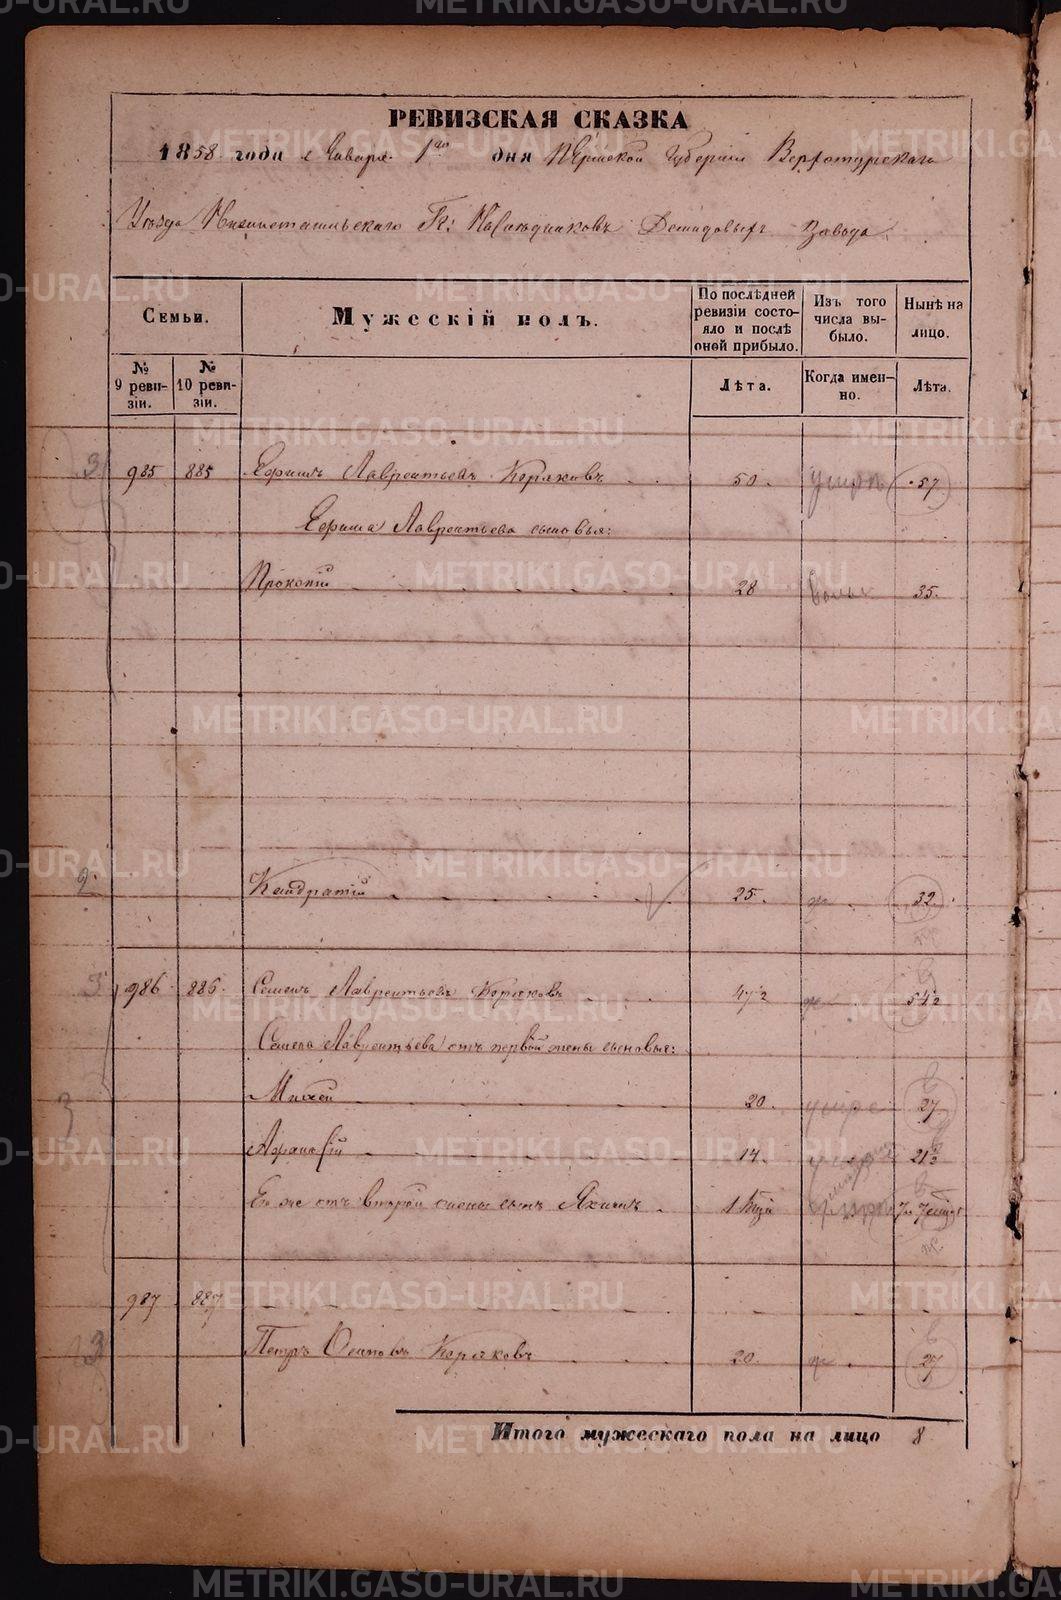 РЕВИЗСКАЯ СКАЗКА
1858 года Января 1го дня Пермской Губернии Верхотурскаго
Уѣзда Нижнетагильскаго Гг: Наслѣдниковъ Демидовыхъ Завода.
Семьи.
Мужескій полъ.
По послѣдней ревизіи состояло и послѣ оной прибыло.
Изъ того числа выбыло.
Нынѣ на лицо.
№ 9 ревизіи.
№ 10 ревизіи.
Лѣта.
Когда именно.
Лѣта.
3 985 885 Ефимъ Лаврентьевъ Коряковъ 50. умеръ 57
Ефима Лаврентьева сыновья:
Прокопій 28 35.
2 Кандратій 25. 32.
3 986 886 Семенъ Лаврентьевъ Коряковъ 47½ 54½
Семена Лаврентьева отъ первой жены сыновья:
3 Михей 20. умре 27
Афанасій 14. 21½
Его же отъ второй жены сынъ Якимъ 1
987 887
3 Петръ Осиповъ Коряковъ 20. 27
Итого мужескаго пола на лицо 8
METRIKI.GASO-URAL.RU